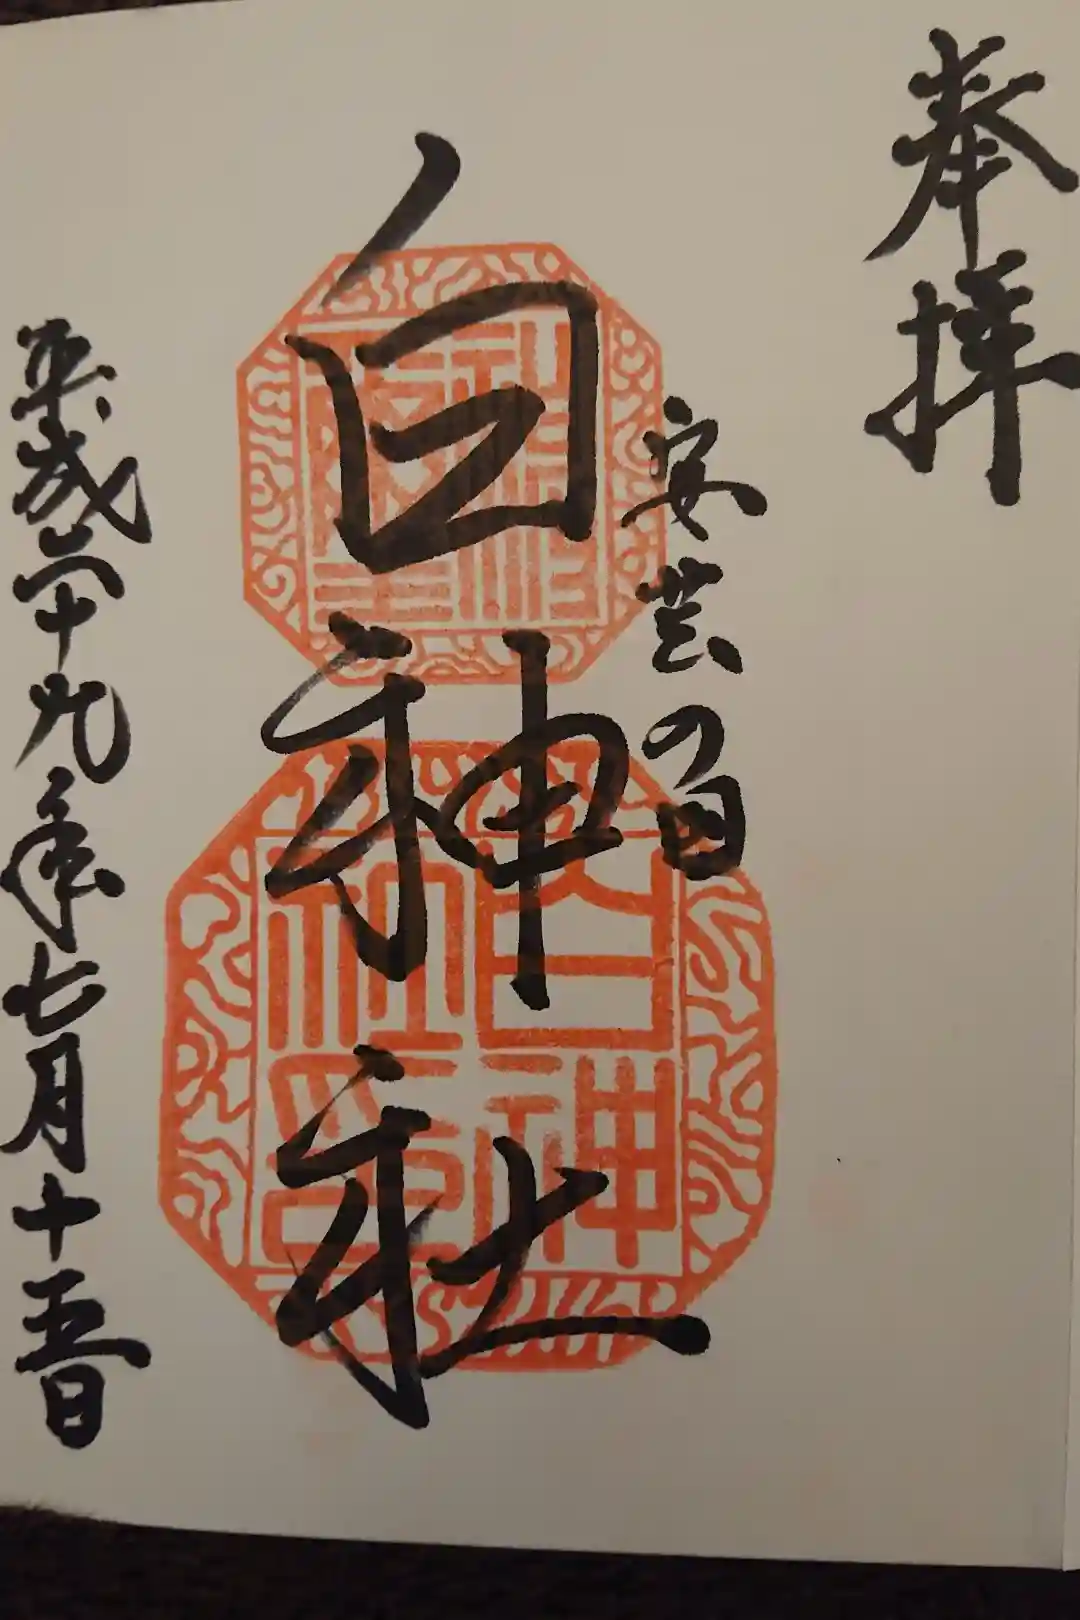 奉拝
安芸の国
白神社
白神社印
平成二十九年七月十五日